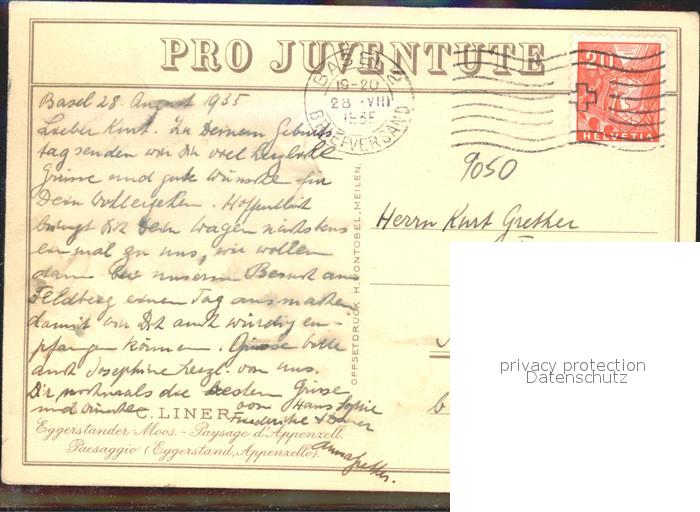 PRO JUVENTUTE
BASEL
19-20
28 VIII
1935
BRIEFVERSAND
20
HELVETIA
Basel 28. August 1935
Lieber Kurt. Zu Deinem Geburts
tag senden wir Dir viel herzliche
Grüsse und gute Wünsche für
Dein Wohlergehen. Hoffentlich
bringt Dich dein Wagen nächstens
einmal zu uns, wir wollen
dann bei unserm Besuch am
Feldberg einen Tag ausmachen
damit wir Dich auch würdig em-
pfangen können. Grüsse bitte
auch Josephine herzl. von uns.
Dir nochmals die besten Grüsse
und Wünsche von Hans, Sophie
Friederike
9050
Herrn Kurt Grether
OFFSETDRUCK H. VONTOBEL, MEILEN.
C. LINER
Eggerstanden-Moos. - Paysage d'Appenzell.
Paesaggio (Eggerstand, Appenzello).
privacy protection
Datenschutz